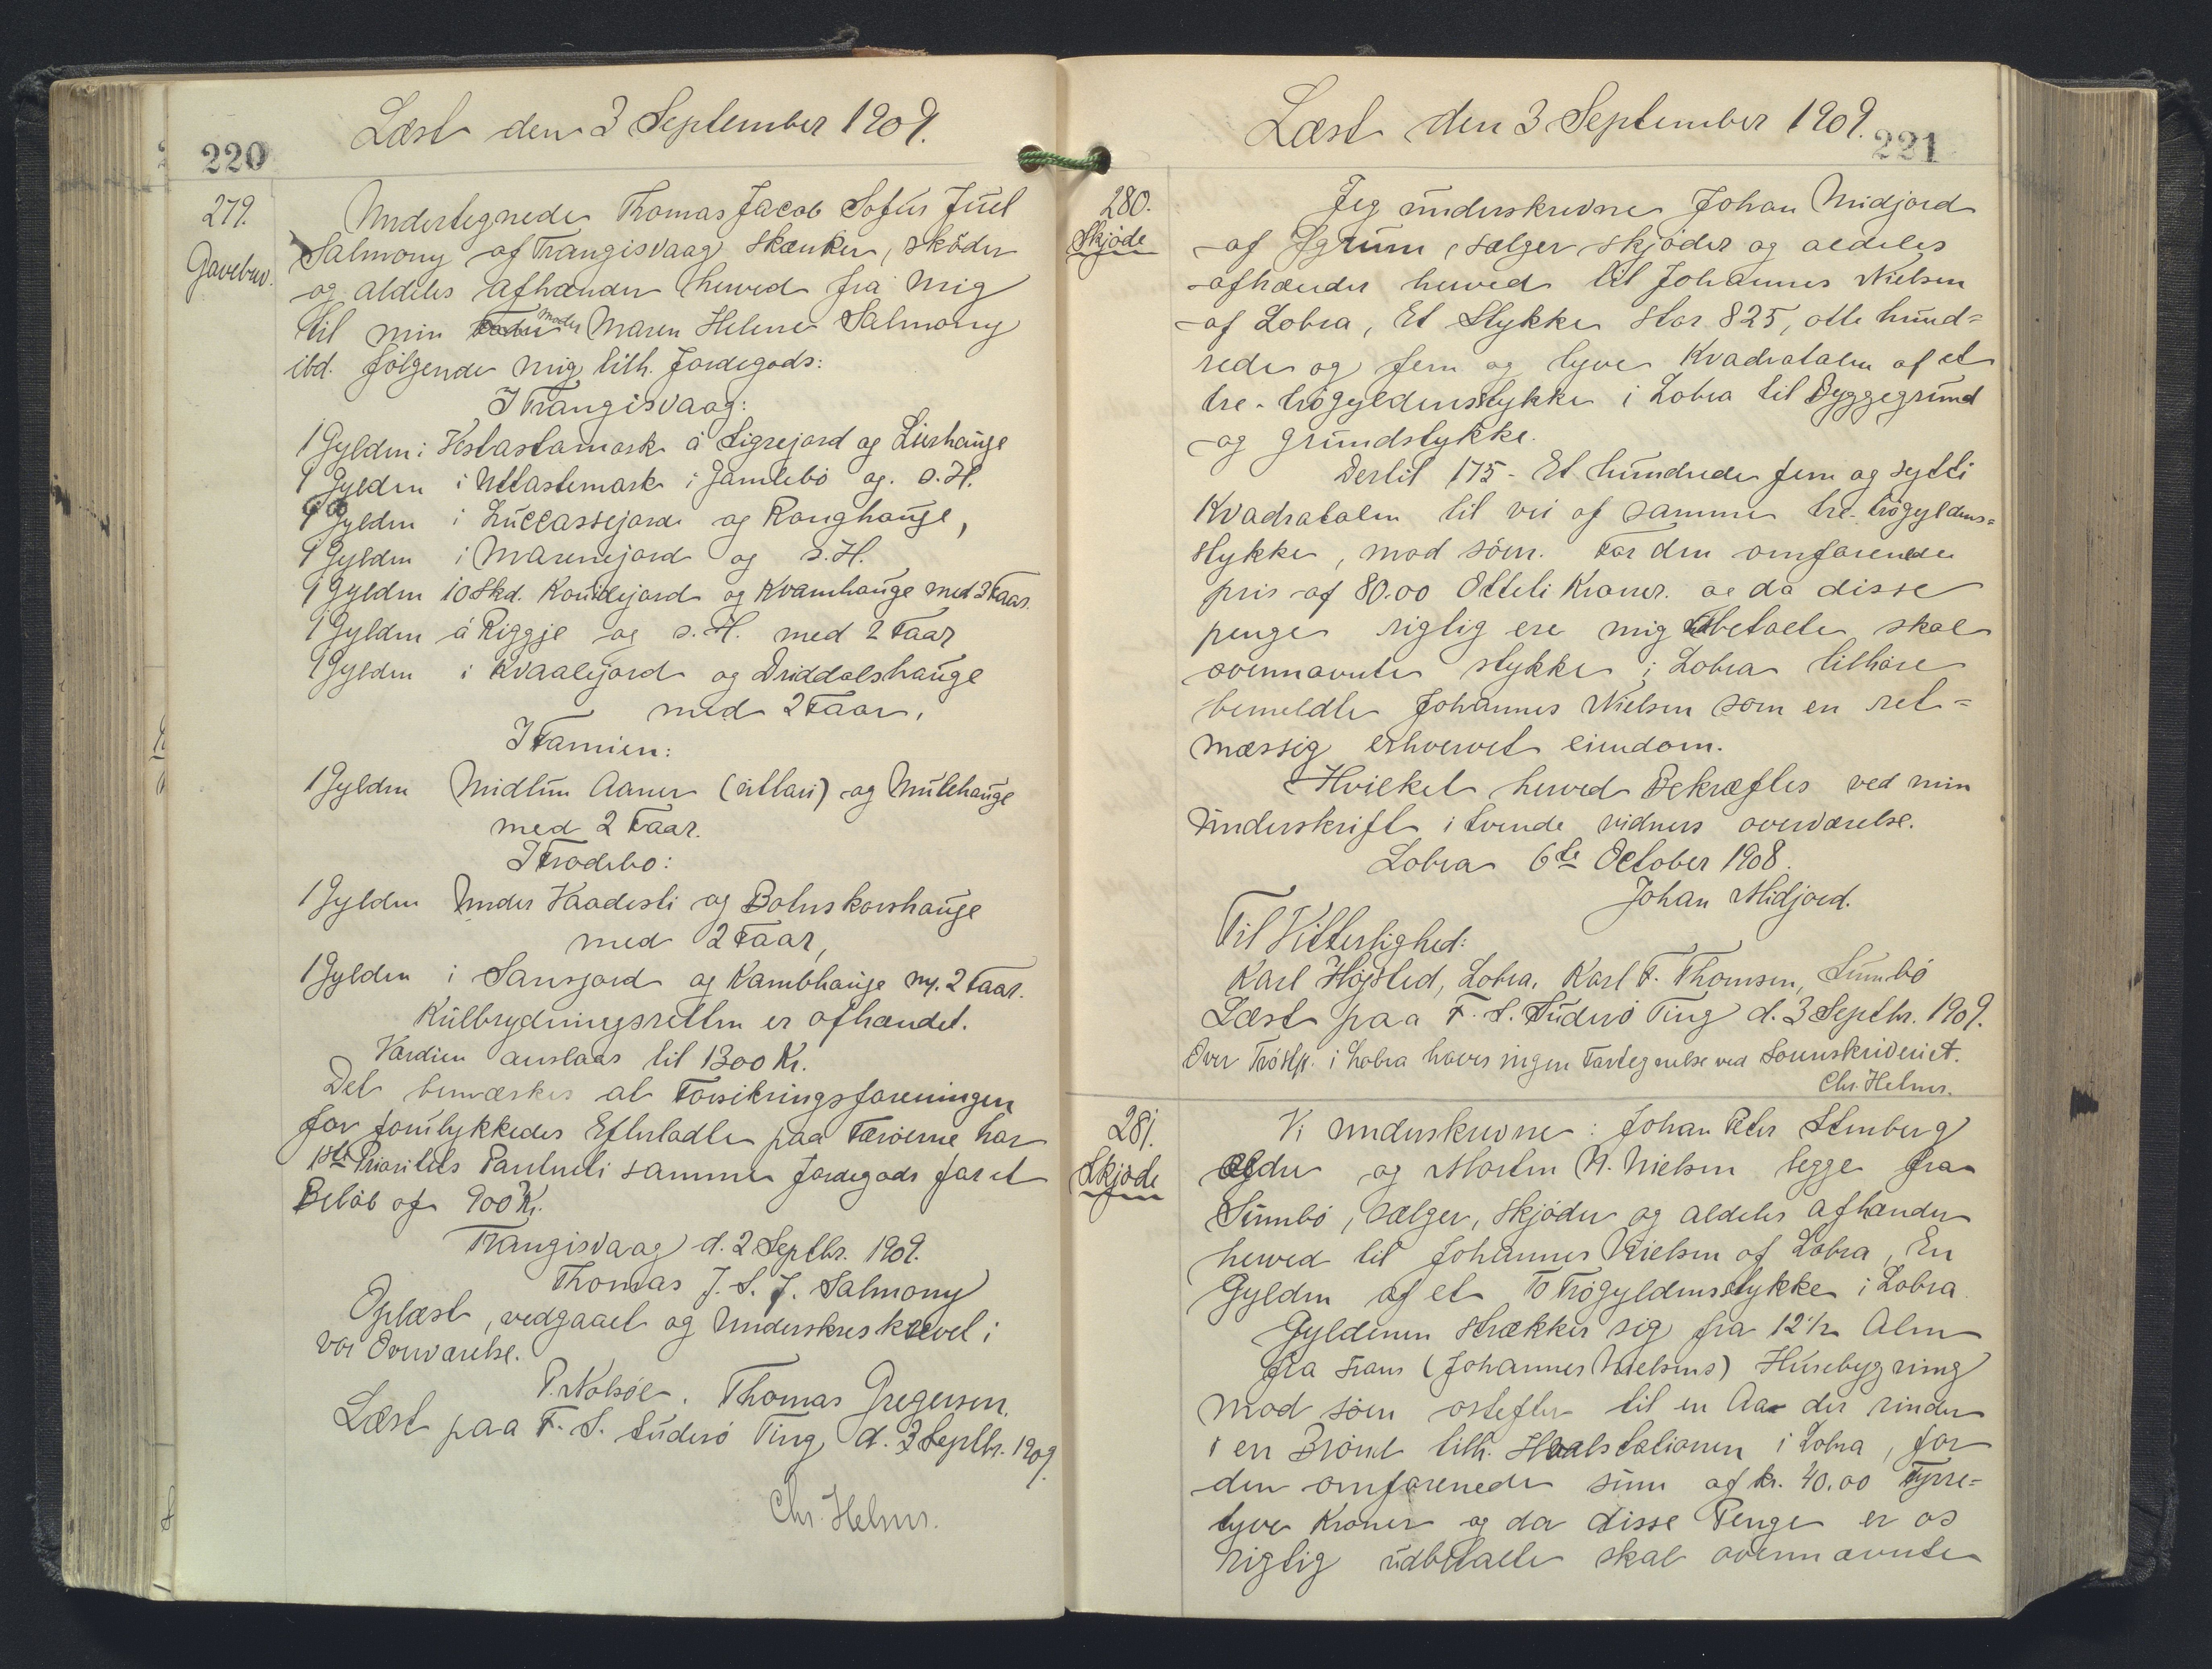 Læst den 3 September 1909.
220
279.
Gavebrev.
Undertegnede Thomas Jacob Sofus Juel
Salmony af Trangisvaag skænker, sköder
og aldeles afhænder herved fra mig
til min Moder Maren Helene Salmony
ibd. følgende mig tilh. Jordegods:
I Trangisvaag:
1 Gylden i Vestastamark á Sigrejord og Liishauge
1 Gylden i Uttastemark i Jamlebö og s. H.
1 Gylden i Luccassejord og Ranghauge,
1 Gylden i Marenejord og s. H.
1 Gylden 10 Skd. Konüdejord og Kvamhauge med 3 Faar.
1 Gylden á Riggje og s. H. med 2 Faar
1 Gylden i Kvaalejord og Driddalshauge
med 2 Faar,
I Famien:
1 Gylden Midtün Aaner (ittari) og Mülehauge
med 2 Faar.
I Frodebo:
1 Gylden Under Vaadesti og Botnskorshauge
med 2 Faar,
1 Gylden i Sansjord og Kambhauge m. 2 Faar.
Külbrydningsretten er afhændet.
Værdien anslaas til 1300 Kr.
Det bemærkes at Forsikringsforeningen
for forulykkedes Efterladte paa Færöerne har
1ste Prioritets Panteret i samme Jordegods for et
Belöb af 900 Kr.
Trangisvaag d. 2 Septbr. 1909.
Thomas J. S. J. Salmony
Oplæst, vedgaaet og Underskreskrevet i
vor Overværelse.
P. Nolsöe. Thomas Gregersen.
Læst paa F. S. Suderö Ting d. 3 Septbr. 1909
Chr. Helms.
Læst den 3 September 1909.
221
280.
Skjöde
Jeg underskrevne Johan Midjord
af Ygrum, sælger skjöder og aldeles
afhænder herved til Johannes Nielsen
af Lobra, Et Stykke stor 825, otte hund=
rede og fem og tyve Kvadratalen af et
tre-trögyldensstykke i Lobra til Byggegrund
og grundstykke.
Dertil 175 - Et hundrede fem og sytti
Kvadratalen til vei af samme tre-trögyldens=
stykke, mod söen. For den omforenede
pris af 80.00 Otteti Kroner. og da disse
penge rigtig ere mig udbetalte skal
ovennævnte stykke i Lobra tilhöre
bemeldte Johannes Nielsen som en ret=
mæssig erhvervet eiendom.
Hvilket herved Bekræftes ved min
Underskrift i tvende vidners overværelse.
Lobra 6te October 1908.
Johan Midjord.
Til Vitterlighed:
Karl Højsted, Lobra, Karl F. Thomsen, Sumbö
Læst paa F. S. Süderö Ting d. 3 Septbr. 1909.
Over Tröstk. i Lobra haves ingen Fortegnelse ved Sorenskriveriet.
Chr. Helms.
281.
Skjöde
Vi underskrevne: Johan Peter Stenberg
ældre og Morten N. Nielsen begge fra
Sumbö, sælger, skjöder og aldeles afhænder
herved til Johannes Nielsen af Lobra, En
Gylden af et To Trögyldensstykke i Lobra.
Gyldenen strækker sig fra 12 1/2 Alen
fra Hans (Johannes Nielsens) Husebygning
mod söen östefter til en Aa der rinder
i en Brönd tilh. Hvalstationen i Lobra, for
den omforenede sum af kr. 40.00 Fyrre=
tyve Kroner og da disse Penge er os
rigtig udbetalte skal ovennævnte